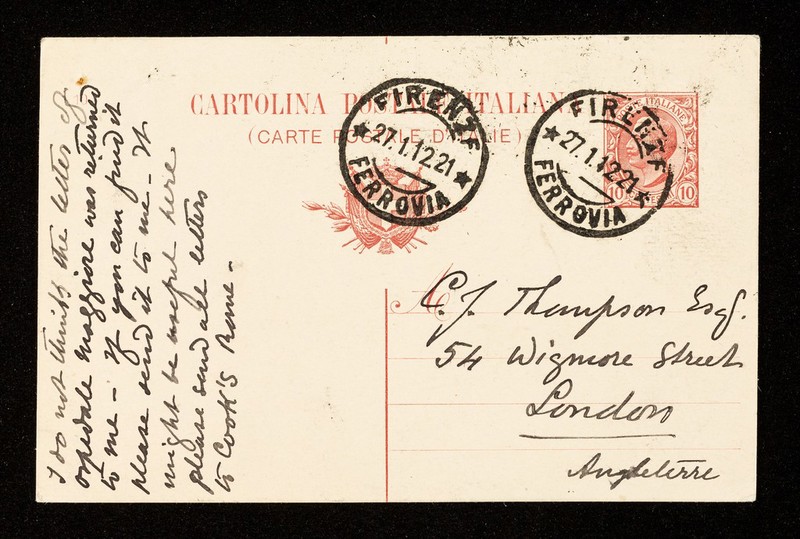 CARTOLINA POSTALE ITALIANA
(CARTE POSTALE D'ITALIE)
FIRENZE
27.1.12.21
FERROVIA
FIRENZE
27.1.12.21
FERROVIA
10 10
C. J. Thompson Esq.
54 Wigmore Street
London
Angleterre
I do not think the letter of
ospedale maggiore was returned
to me - If you can find it
please send it to me - It
might be useful here
please send all letters
to Cook's Rome -